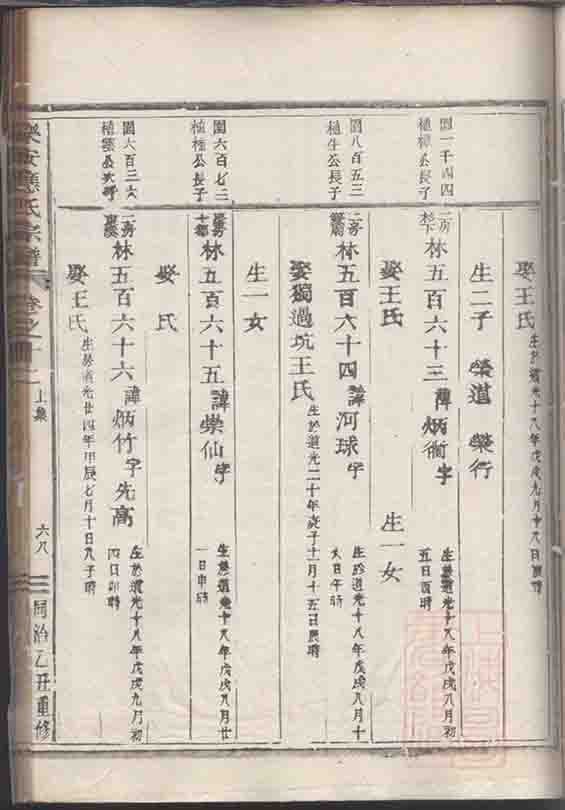 娶王氏 生於道光十八年戊戌九月十八日辰時
生二子 榮道 榮行
園一千四四
植樟公長子
二房
林五百六十三 諱炳衕字
生於道光十八年戊戌八月初
五日酉時
娶王氏 生一女
園八百五三
植生公長子
林五百六十四 諱河球字
生於道光十八年戊戌八月十
六日午時
娶獨過坑王氏 生於道光二十年庚子十一月十五日辰時
生一女
園六百七三
公長子
林五百六十五 諱崇仙字
生於道光十八年戊戌八月廿
一日申時
娶 氏
園六百三六
植 公次子
二房
林五百六十六 諱炳竹字先高
生於道光十八年戊戌九月初
四日卯時
娶王氏 生於道光廿四年甲辰七月十日九子時
樂安應氏宗譜
卷之
上集
六八
同治乙丑重修